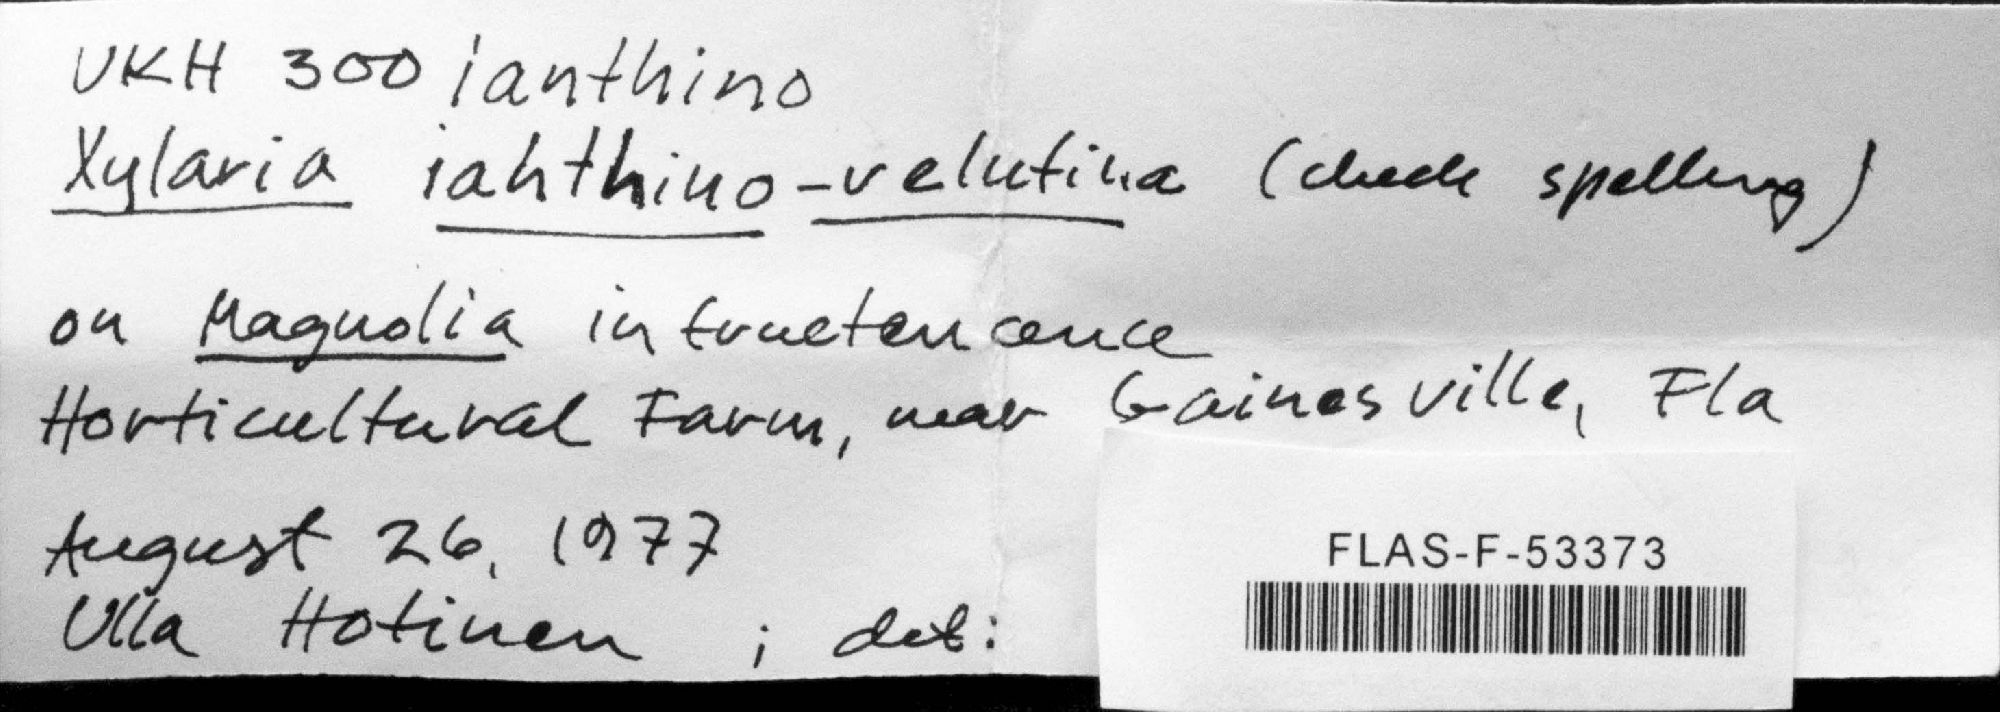 UKH 300 ianthino
Xylaria ianthino-velutina (check spelling)
on Magnolia infructencence
Horticultural Farm, near Gainesville, Fla
August 26, 1977
Ulla Hotinen ; det:
FLAS-F-53373